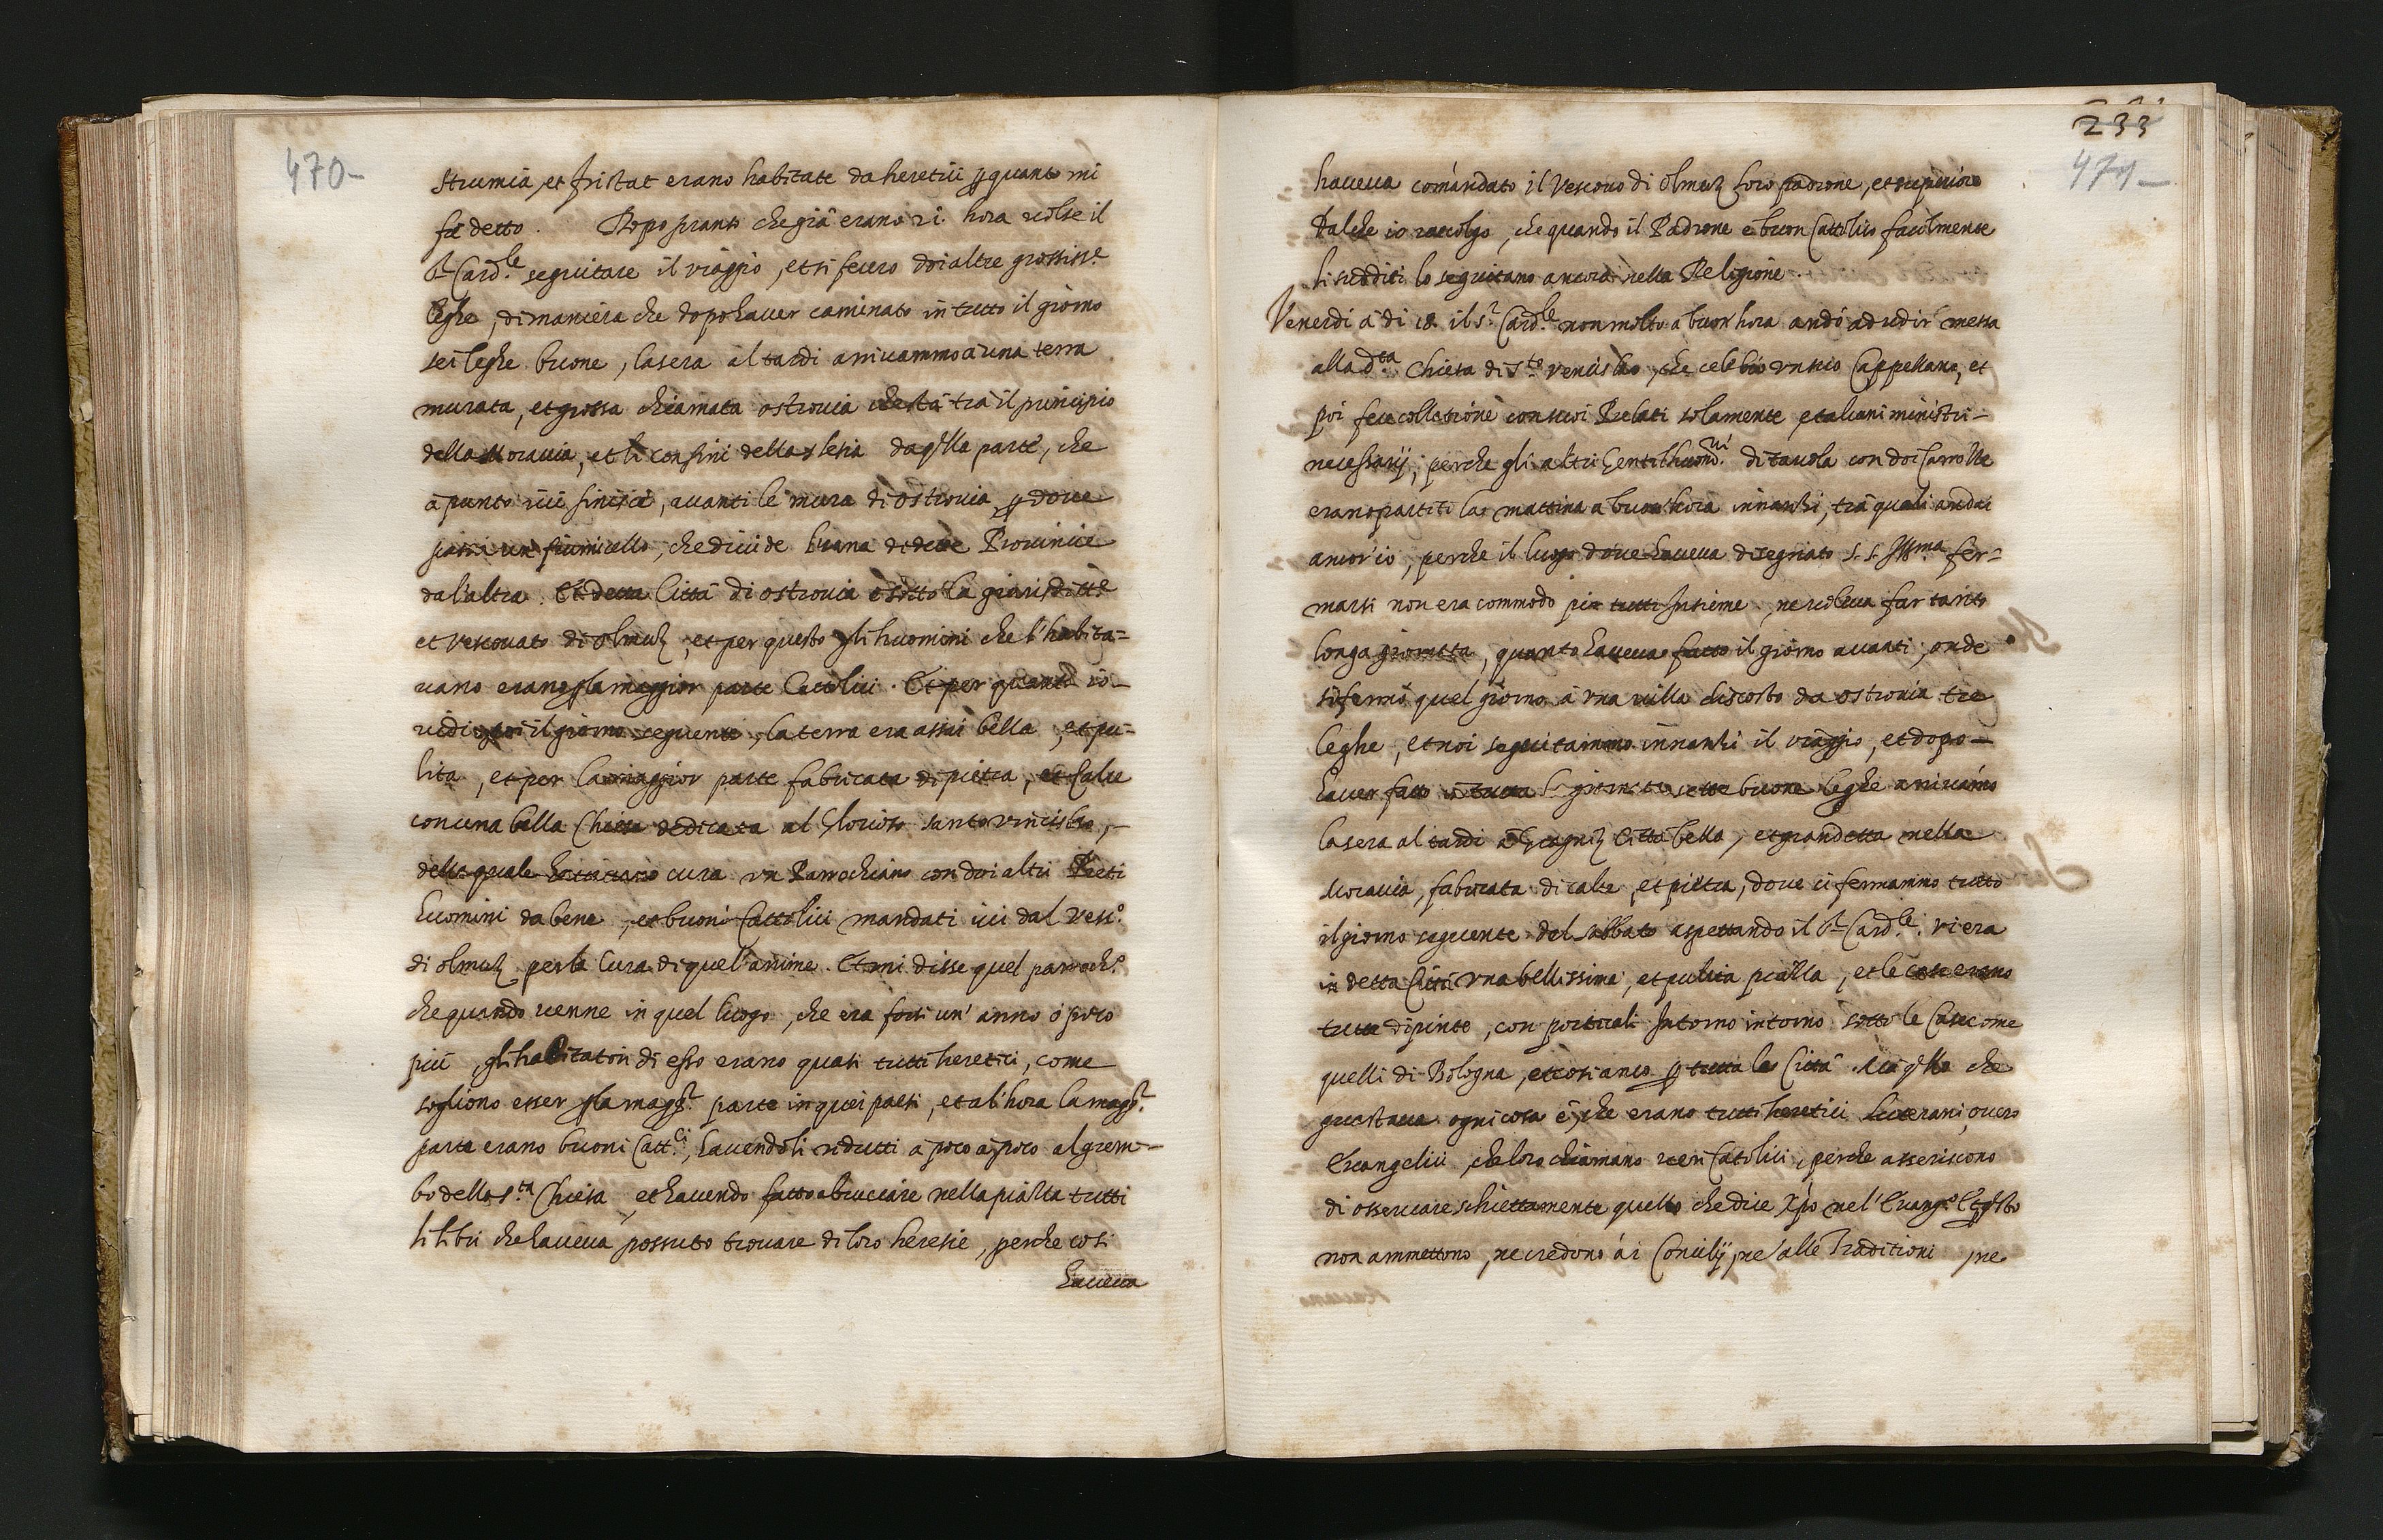 470-
Strumia, et fristat erano habitate da heretici p quanto mi
fù detto. Dopo pranso che già erano 21 hora volse il
Sr Card.le seguitare il viaggio, et si fecero doi altre grossiss.e
leghe, di maniera che dopo haver caminato in tutto il giorno
sei leghe buone, la sera al tardi arrivammo à una terra
murata, et grossa chiamata ostrovia che stà trà il principio
della Moravia, et li confini della slesia da qlla parte, che
à punto ivi finisce, avanti le mura di ostrovia p dove
passa un fiumicello, che divide l'una di dette Provincie
da l'altra. Et detta Città di ostrovia è sotto la giurisditt.e
et Vescovato di olmuz, et per questo gli huomini che l'habita=
vano erano p la maggior parte Cattolici. Et per quanto io
vidi poi il giorno seguente, la terra era assai bella, et pu=
lita, et per la maggior parte fabricata di pietra, et calce
con una bella Chiesa dedicata al glorioso santo vincislao,
della quale cura un Parrochiano con doi altri Preti
huomini da bene, et buoni Cattolici mandati ivi dal Vesc.o
di olmuz per la Cura di quel'anime. Et mi disse quel parroch.o
che quando venne in quel luogo, che era forsi un' anno ò poco
più, gli habitatori di esso erano quasi tutti heretici, come
sogliono esser p la magg.r parte in quei paesi, et al'hora la magg.r
parte erano buoni Catt.ci, havendoli ridutti à poco à poco al grem-
bo della s.ta Chiesa, et havendo fatto abrucciare nella piazza tutti
li libri che haveva possuto trovare di loro heresie, perche cosi
haveva
233
471-
haveva comandato il Vescovo di olmuz loro padrone, et superiore
Dal che io raccolgo, che quando il Padrone è buon Cattolico facilmente
li sudditi lo seguitano ancora nella Religione.
Venerdi à di 18. il s.r Card.le non molto a buon hora andò ad udir messa
alla d.ta Chiesa di s.to Vencislao, che celebrò un suo Cappellano, et
poi fece collatione con suoi Prelati solamente et alcuni ministri
necessarij, perche gli altri Gentilhuom.ni di tavola con doi Carrozze
erano partiti la mattina a buon'hora innanzi, trà quali andai
ancor'io, perche il luogo dove haveva disegnato S. S. Ill.ma fer=
marsi non era commodo per tutti Insieme, ne voleva far tanto
longa giornata, quanto haveva fatto il giorno avanti, onde
si fermò quel giorno à una villa discosto da ostrovia tre
leghe, et noi seguitammo innanzi il viaggio, et dopo
haver fatto in tutta la giornata sette buone leghe arrivamo
la sera al tardi à Città bella, et grandetta nella
Moravia, fabricata di calce, et pietra, dove ci fermammo tutto
il giorno seguente del sabbato aspettando il S.r Card.le. Vi era
in detta Città una bellissima, et pulita piazza, et le case erano
tutte dipinte, con porticali Intorno intorno sotto le Case come
quelli di Bologna, et cosi anco p tutta la Città. Ma qllo che
guastava ogni cosa è, che erano tutti heretici luterani, overo
Evangelici, che loro chiamano veri Catolici, perche asseriscono
di osservare schiettamente quello che dice Xpo nel' Evang.o Et p qsto
non ammettono, ne credono ài Concilij, ne alle Traditioni, ne